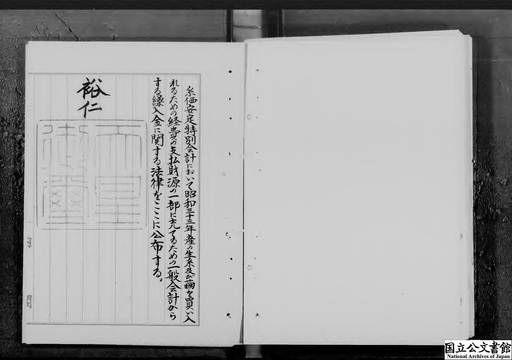 糸価安定特別会計において昭和三十三年産の生糸及び繭を買い入
れるための経費の支払財源の一部に充てるための一般会計から
する繰入金に関する法律をここに公布する。
裕仁
天皇
御璽
国立公文書館
National Archives of Japan